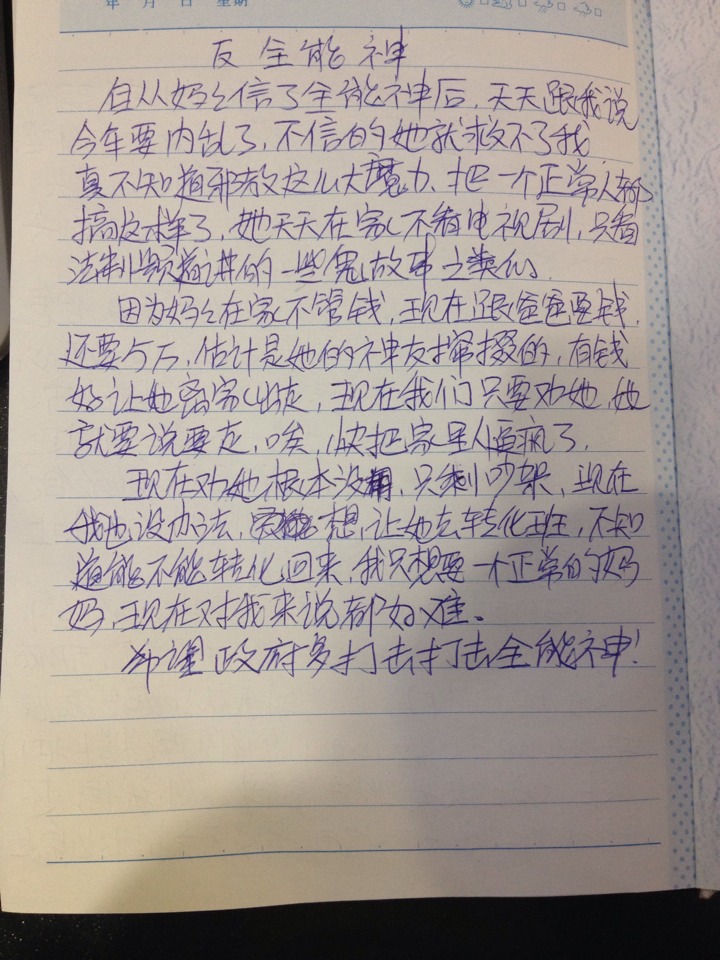 年 月 日 星期
反全能神
自从妈么信了全能神后,天天跟我说
今年要内乱了,不信的她就救不了我
真不知道邪教这么大魔力、把一个正常人都
搞成这样了,她天天在家不看电视剧,只看
法制频道讲的一些鬼故事之类的。
因为妈么在家不管钱,现在跟爸爸要钱,
还要5万,估计是她的神友撺掇的,有钱
好让她离家出走,现在我们只要劝她,她
就要说要走,唉,快把家里人逼疯了,
现在劝她根本没用,只剩吵架,现在
我也没办法,想让她去转化班,不知
道能不能转化回来,我只想要一个正常的妈
妈,现在对我来说都好难。
希望政府多打击打击全能神!